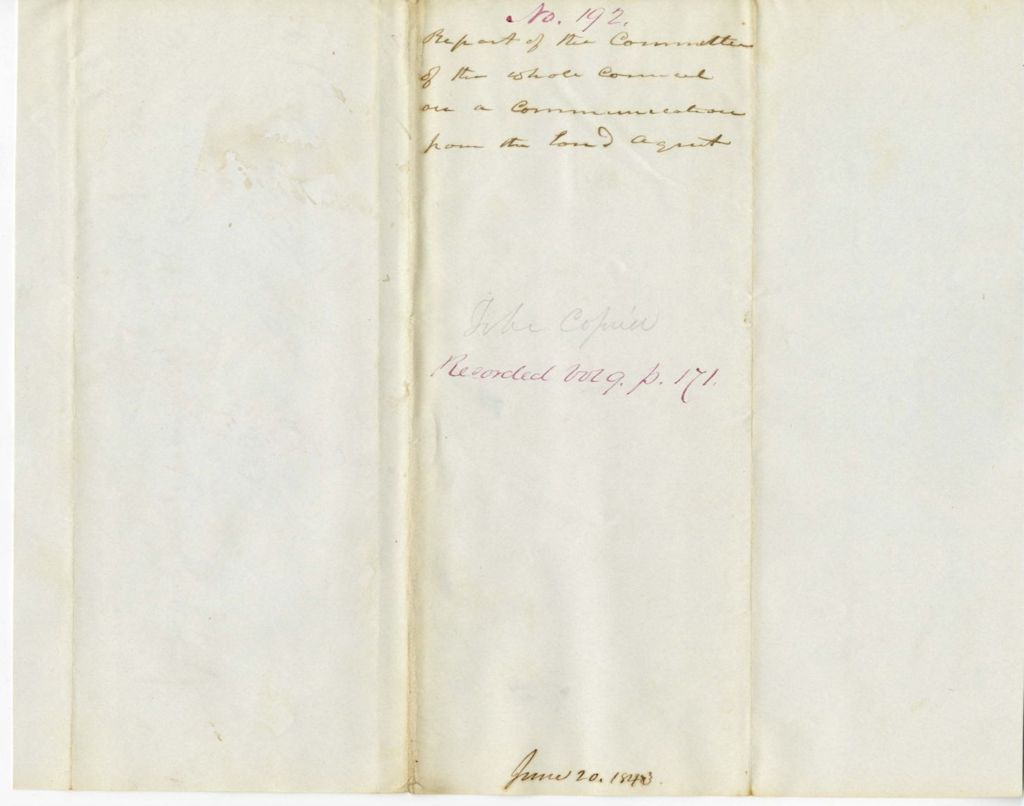 No. 192.
Report of the Committee
of the whole Council
on a Communication
from the Land Agent
To be Copied
Recorded Vol 9. p. 171.
June 20. 1843.